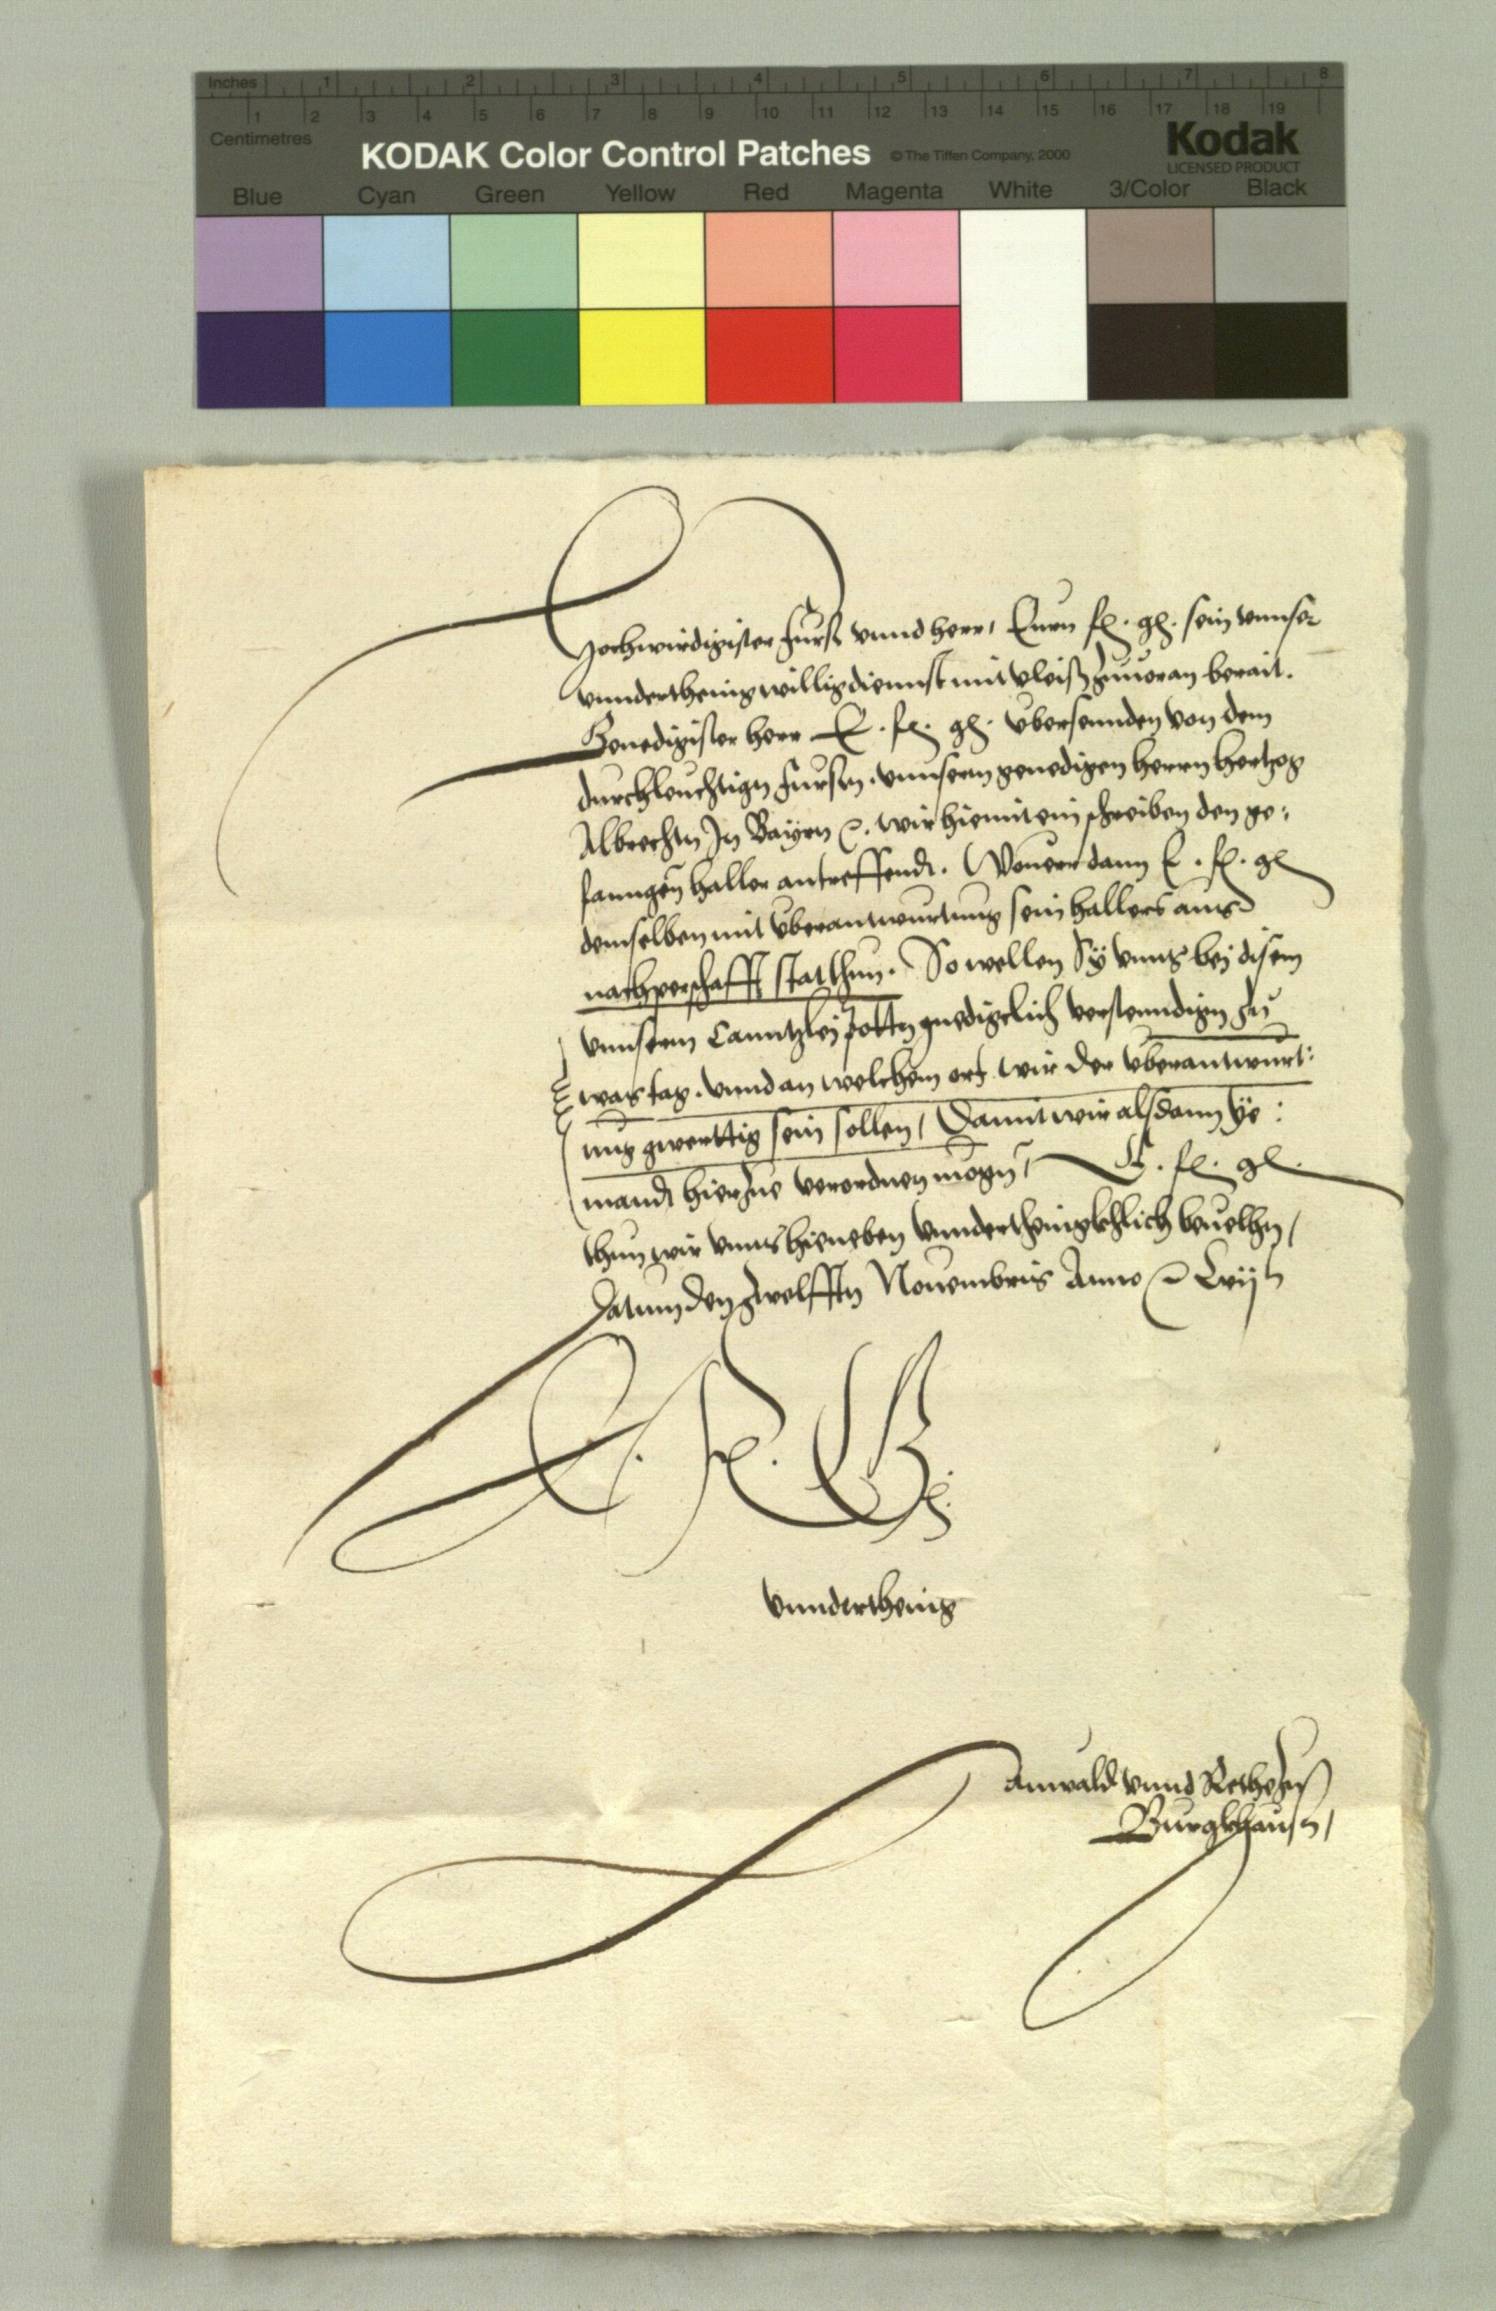 Inches 1 2 3 4 5 6 7 8
1 2 3 4 5 6 7 8 9 10 11 12 13 14 15 16 17 18 19
Centimetres
KODAK Color Control Patches © The Tiffen Company, 2000 Kodak
LICENSED PRODUCT
Blue Cyan Green Yellow Red Magenta White 3/Color Black
Hochwirdigister Fürst vnnd herr, Eurn fl. gl. sein vnnser
vnnderthenig willig diennst mit vleiß zuuoran berait.
Genedigister herr E. fl. gl. vbersennden von dem
durchleuchtign Fürstn. vnnserm genedigen herrn hertzog
Albrechtn In Bayrn wir hiemit ein schreiben den ge:
fanngen haller antreffendt. Wouerr dann E. fl. gl
demselben mit vberantwurtung sein hallers aus
nachperschafft stat thun. So wellen Sy vnns bej disem
vnnserm Canntzlej potn gnedigclich verstenndign zu
was tag. vnnd an welchem ort wir der vberantwurt:
ung gwerttig sein sollen, Damit wir alsdann ye:
mandt hierzue verordnen mögn, E. fl. gl.
thun wir vnns hieneben vnnderthenigkhlich beuelhn,
Datum den zwelfftn Nouembris Anno Lvij
E. F. G.
vnnderthenig
Anwald vnnd Rethe zu
Burgkhausn,